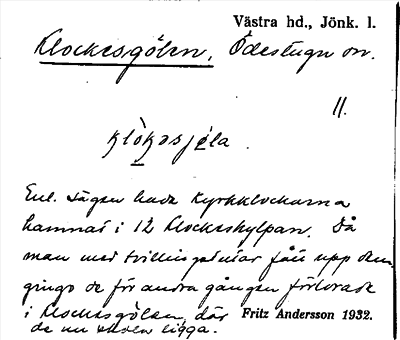 Västra hd., Jönk. l.
Klockesgölen, Ödestugu sn.
11.
klòkasjø̀la
Enl. sägen hade kyrkklockarna
hamnat i 12 Klockeshylpan. Då
man med tvillingstutar fått upp dem
gingo de för andra gången förlorade
i Klockesgölen, där
de nu skola ligga.
Fritz Andersson 1932.